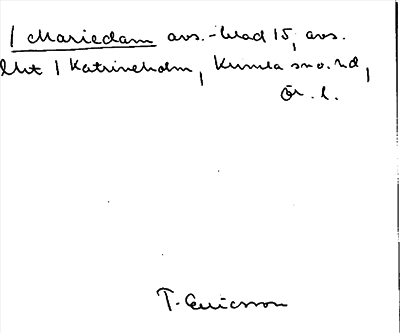 / Mariedam avs.-blad 15, avs.
/ Katrineholm, Kumla sno.rd,
Ör. l.
T. Ericsson